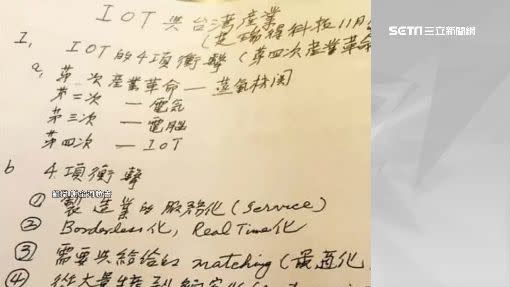 IOT與台灣產業
SETN 三立新聞網
(芝瑞得科技 11月
I, IOT的4項衝擊 (第四次產業革命
a, 第一次產業革命 — 蒸氣機関
第二次 — 電気
第三次 — 電腦
第四次 — IOT
b 4項衝擊
① 製造業的服務化 (Service)
② Borderless化, Real Time化
③ 需要與給給的 matching (最適化,
④ 從大量生產到